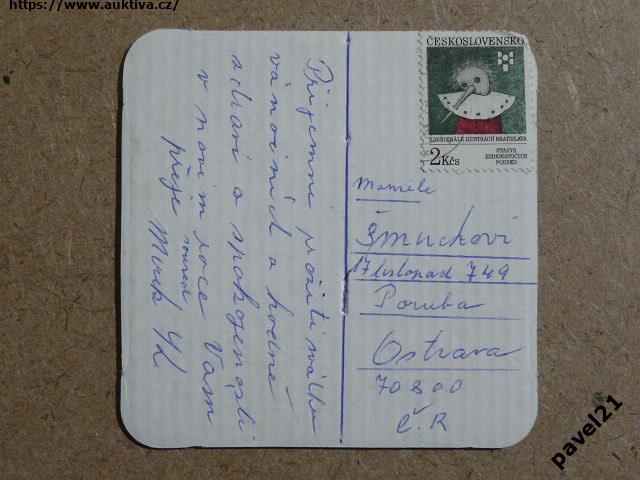 https://www.auktiva.cz/
Příjemné prožití svátků
vánočních a hodně
zdraví a spokojenosti
v novém roce Vám
přeje soused
Mirek
ČESKOSLOVENSKO
BIENÁLE ILUSTRÁCIÍ BRATISLAVA
2 Kčs
STASYS
EIDRIGEVIČIUS
POĽSKO
Manžele
Šmuckovi
17 listopad 749
Poruba
Ostrava
70800
Č.R
pavel21